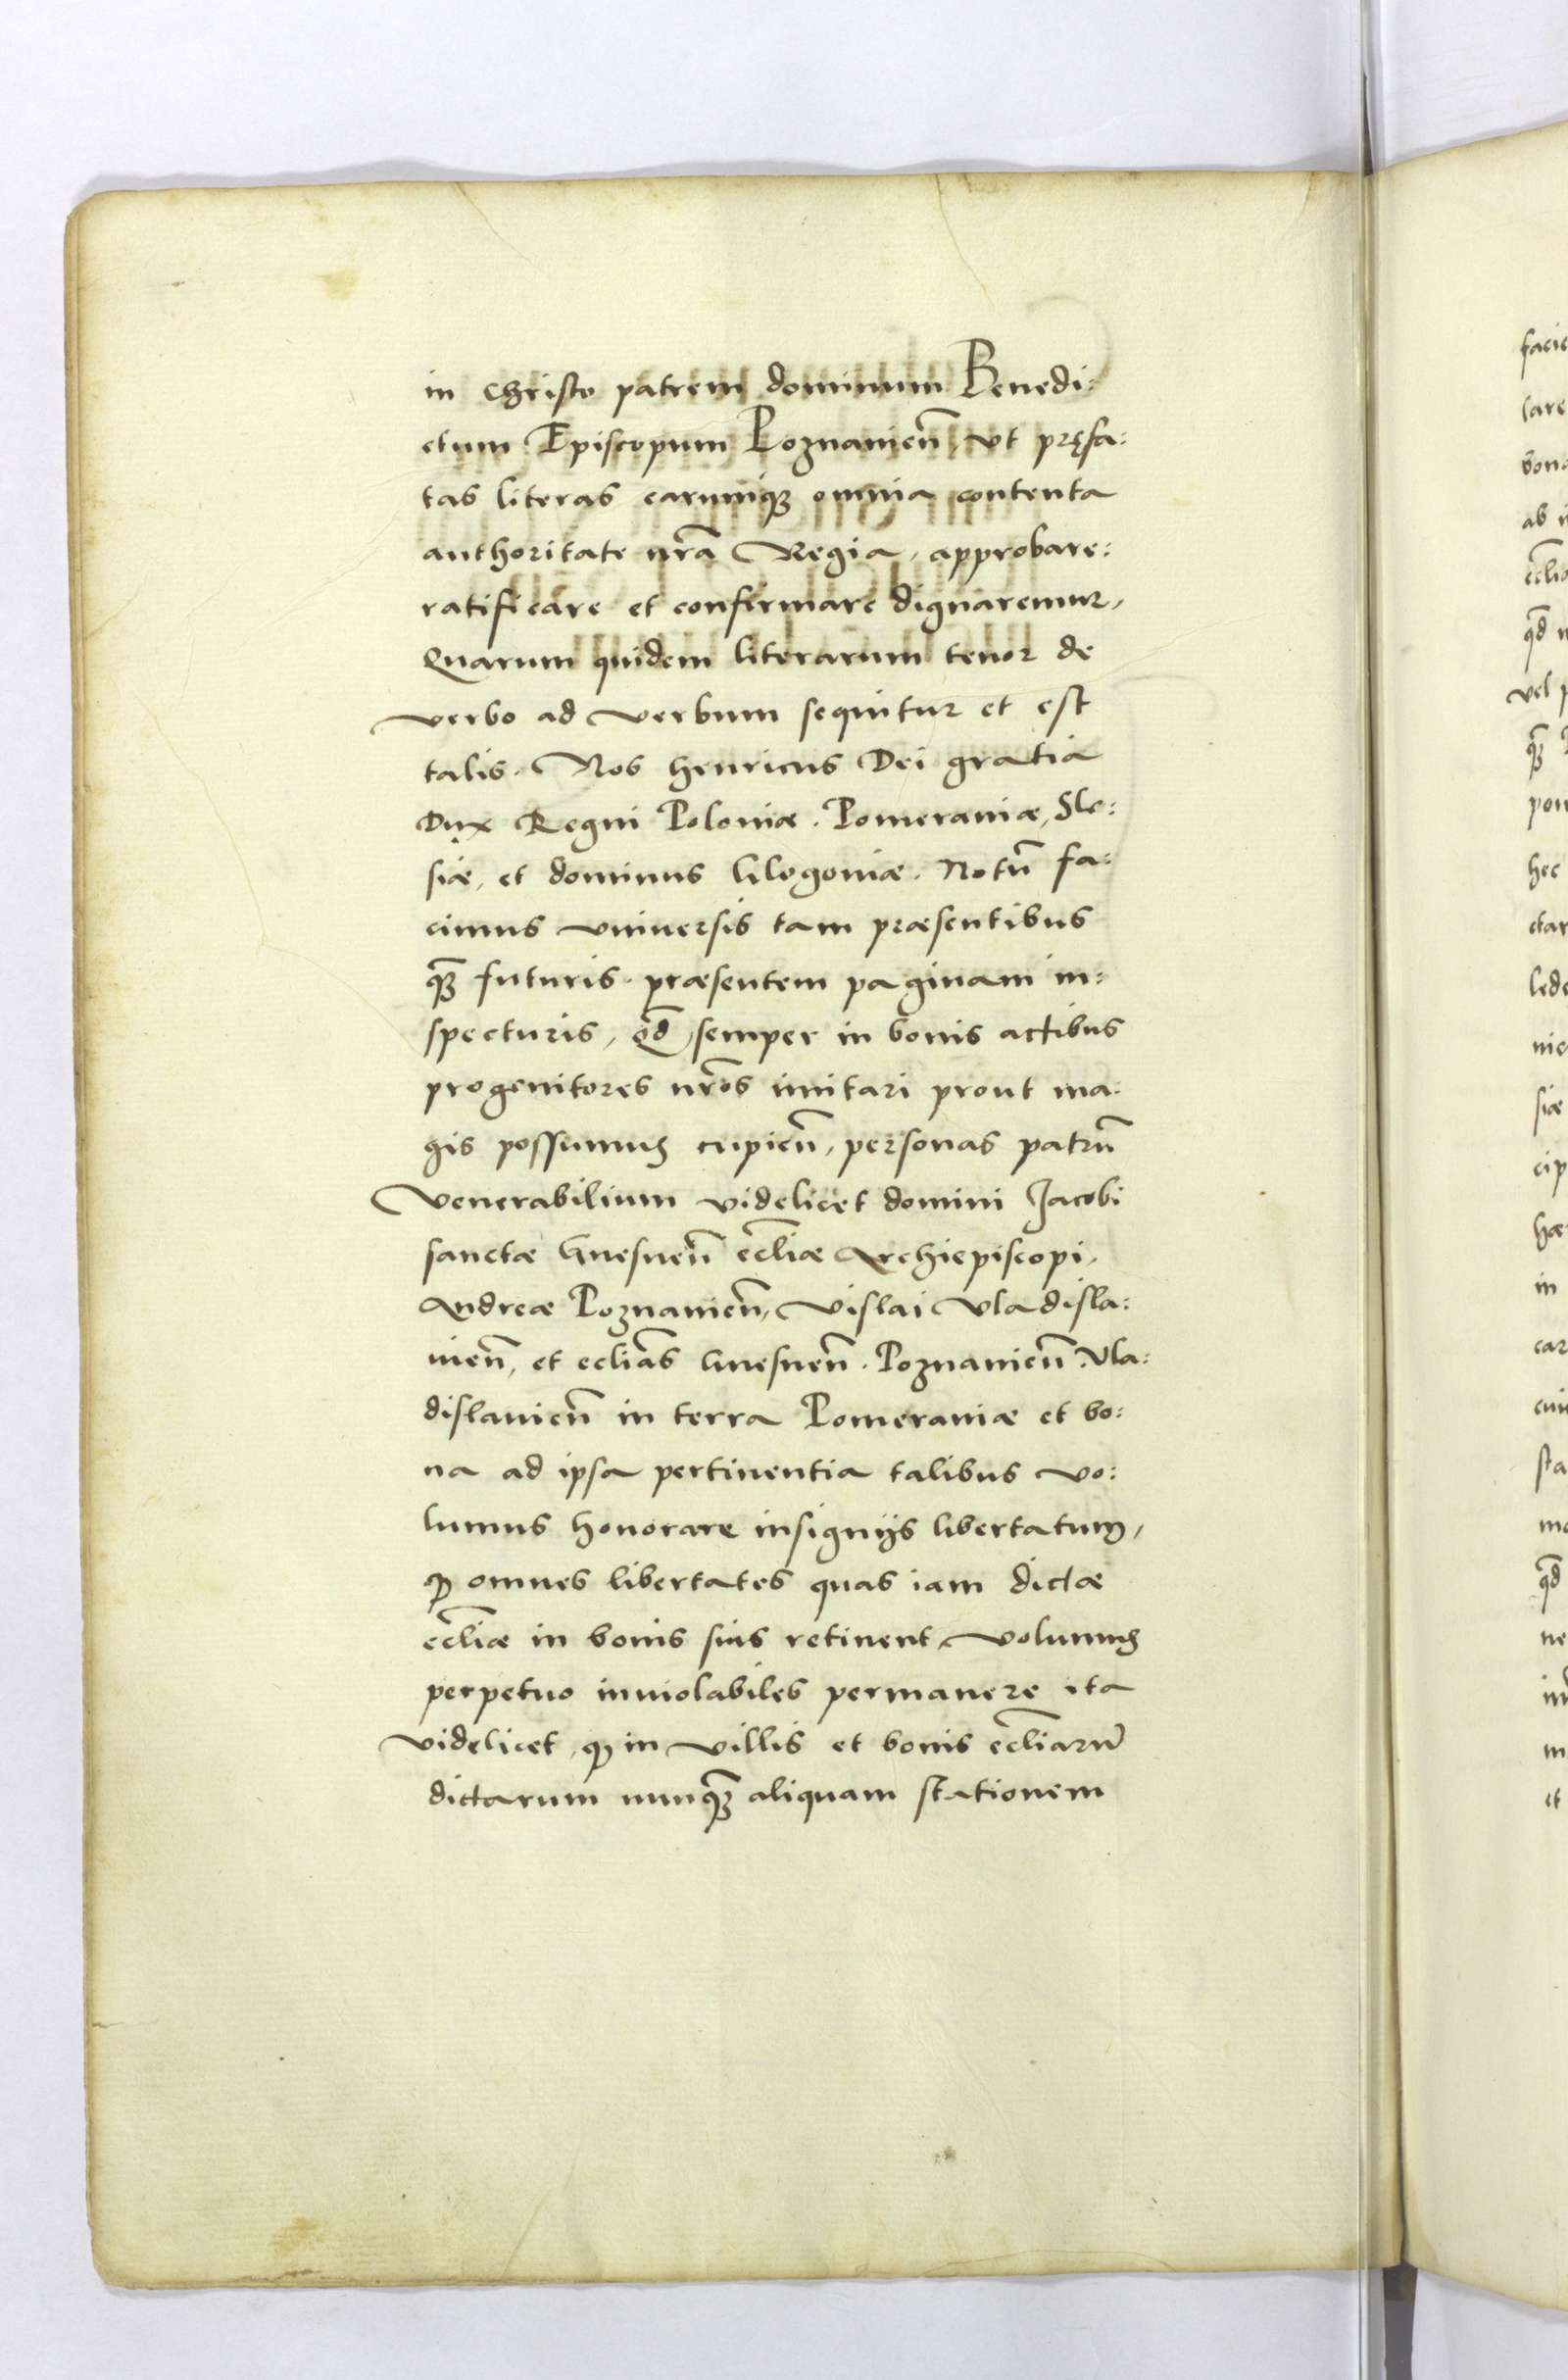 in Christo patrem dominum Benedi:
ctum Episcopum Poznanieñ, vt pręfa:
tas literas earumq̃ omnia contenta
authoritate nr̃a Regia, approbare:
ratificare et confirmare dignaremur,
Quarum quidem literarum tenor de
verbo ad verbum sequitur et est
talis. Nos henricus Dei gratia
Dux Regni Poloniæ. Pomeraniæ, Sle:
siæ, et dominus Glogoniæ. Notũ fa:
cimus vniuersis tam præsentibus
q̃ futuris. præsentem paginam in:
specturis, qđ semper in bonis actibus
progenitores nr̃os imitari prout ma:
gis possumus cupieñ, personas patrũ
Venerabilium videlicet domini Jacobi
sanctæ Gnesneñ ecc̃liæ Archiepiscopi,
Andreæ Poznanieñ, Vislai Vladisla:
uieñ, et eclias̃ Gnesneñ. Poznanieñ. Vla:
dislauieñ in terra Pomeraniæ et bo:
na ad ipsa pertinentia talibus vo:
lumus honorare insignijs libertatum,
ꝙ omnes libertates quas iam dictæ
eccl̃iæ in bonis suis retinent, volumus
perpetuo inuiolabiles permanere ita
videlicet, ꝙ in villis et bonis ecc̃liarũ
dictarum nunq̃ aliquam stationem
faci
lare
bona
ab
qđ
vel
hec
ctar
lede
nie
siæ
cip
hæ
in
car
cui
sta
qđ
ne
et